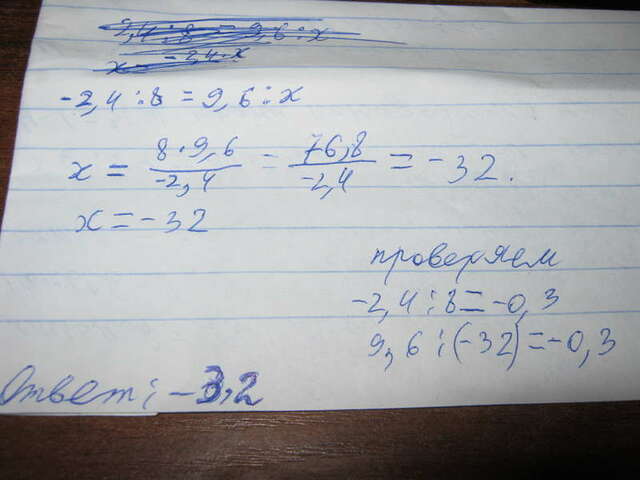 -2,4 : 8 = 9,6 : x
x = 8 · 9,6 / -2,4 = 76,8 / -2,4 = -32.
x = -32
проверяем
-2,4 : 8 = -0,3
9,6 : (-32) = -0,3
Ответ: -3,2